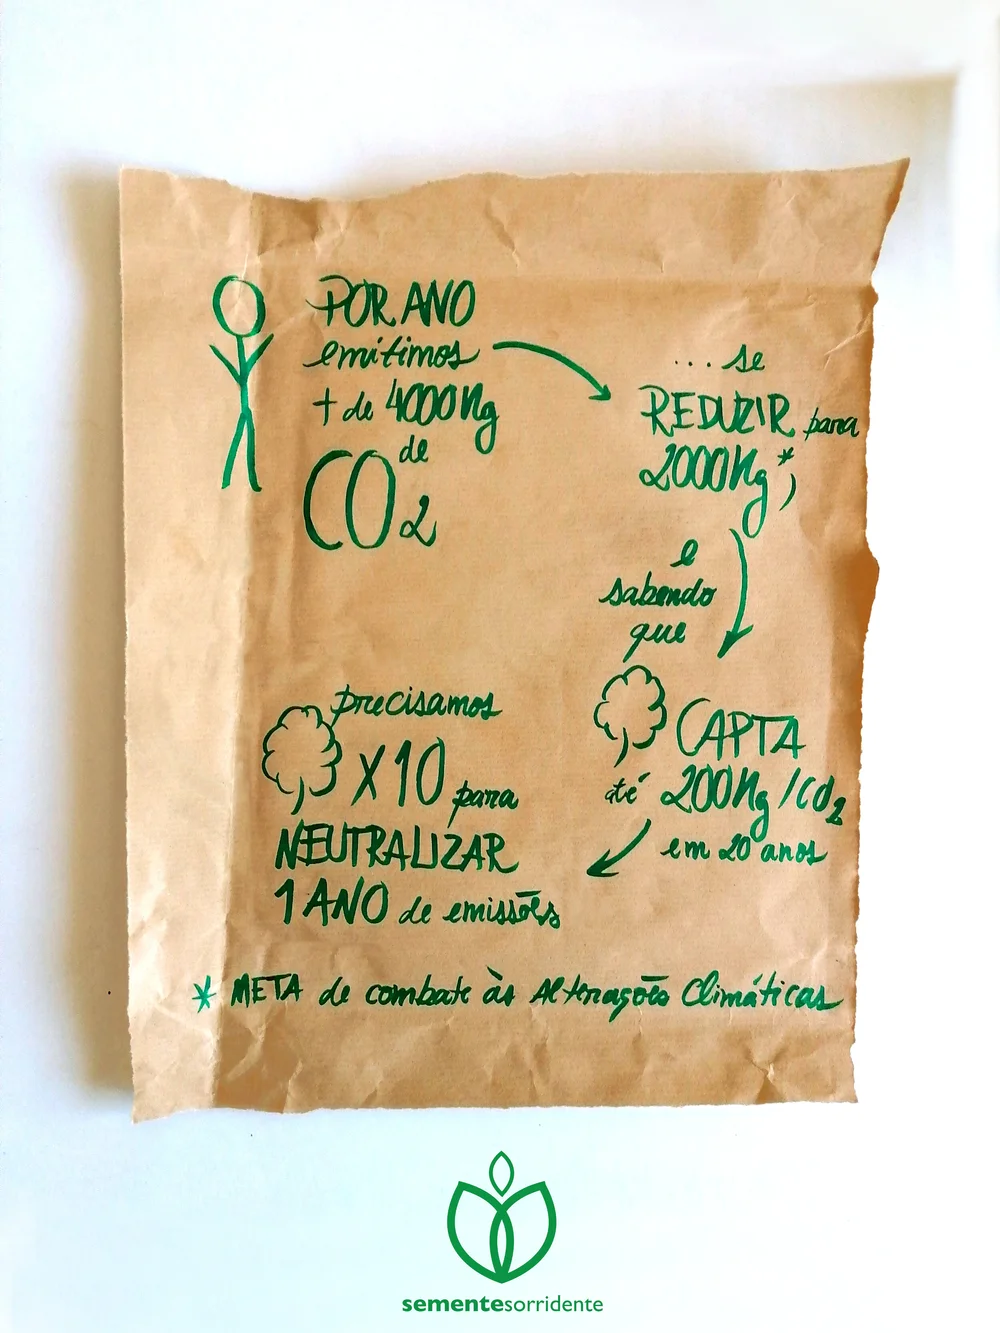 POR ANO
emitimos
+ de 4000Kg
de
CO2
... se
REDUZIR para
2000Kg*,
e
sabendo
que
CAPTA
até 200Kg/CO2
em 20 anos
precisamos
X10 para
NEUTRALIZAR
1 ANO de emissões
* META de combate às Alterações Climáticas
sementesorridente